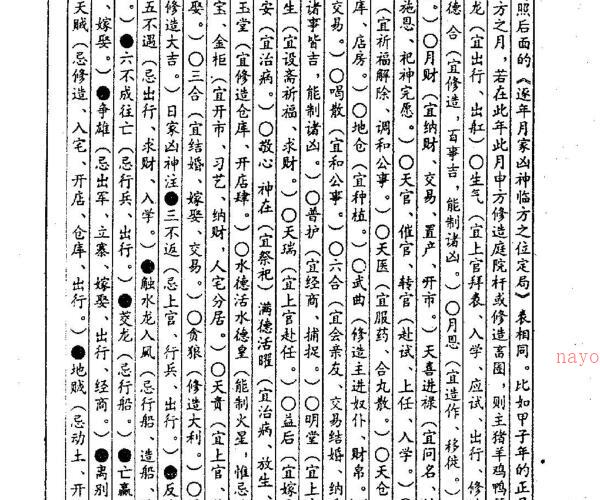 照后面的《逐年月家凶神临方之位定局》表相同。比如甲子年的正
方之月，若在此年此月申方修造庭院杆或修造畜图，则主猪羊鸡鸭
龙（宜出行、出缸）〇生气（宜上官拜表、入学、应试、出行、修
德合（宜修造，百事吉，能制诸凶。）〇月恩（宜造作、移徙。）
。〇月财（宜纳财、交易、置产、开市。）天喜进禄（宜问名、
施恩、祀神定愿。）〇天官、催官、转官（赴试、上任、入学。）
（宜祈福解除、调和公事。）〇天医（宜服药、合丸散。）〇天仓
库、店房。）〇地仓（宜种植。）〇武曲（修造主进奴仆、财帛。）
交易。）〇喝散（宜和公事。）〇六合（宜会亲友、交易结婚、纳
诸事皆吉，能制诸凶。）〇普护（宜经商、捕捉。）〇明堂（宜上
生（宜设斋祈福、求财。）〇天瑞（宜上官赴任。）〇益后（宜嫁
安（宜治病。）〇敬心 神在（宜祭祀）满德活曜（宜治病、放生、
玉堂（宜修造仓库、开店肆。）〇水德活水德皇（能制火星，惟忌
宝、金柜（宜开市、习艺、纳财，人宅分居。）〇天贵（宜上官、
娶。）〇三合（宜结婚、嫁娶、交易。）〇贪狼（修造大利。）〇
修造大吉。）日家凶神注●三不返（忌上官、行兵、出行。）●反
五不遇（忌出行、求财、入学。）●触水龙入风（忌行船、造船、
。）●六不成往亡（忌行兵、出行。）●蛟龙（忌行船。）●亡赢
、嫁娶。）●争雄（忌出军、立寨、嫁娶、出行、经商。）●离别
天贼（忌修造、入宅、开店、仓库、出行。）●地贼（忌动土、开
nayo